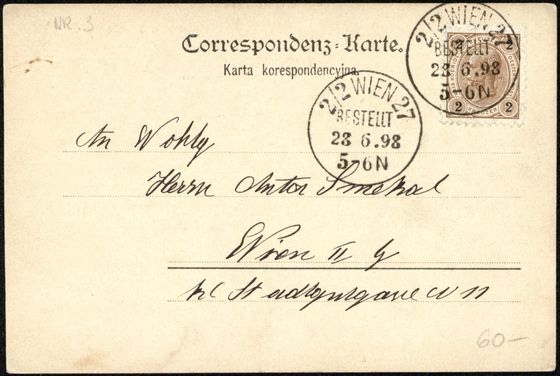 NR. 3
Correspondenz-Karte.
Karta korespondencyjna.
2/2 WIEN 27
BESTELLT
23 6.98
5-6N
2 2
2 2
2/2 WIEN 27
BESTELLT
23 6.98
5-6N
An Wohlg
Herrn Anton
Wien II
N 11
60-